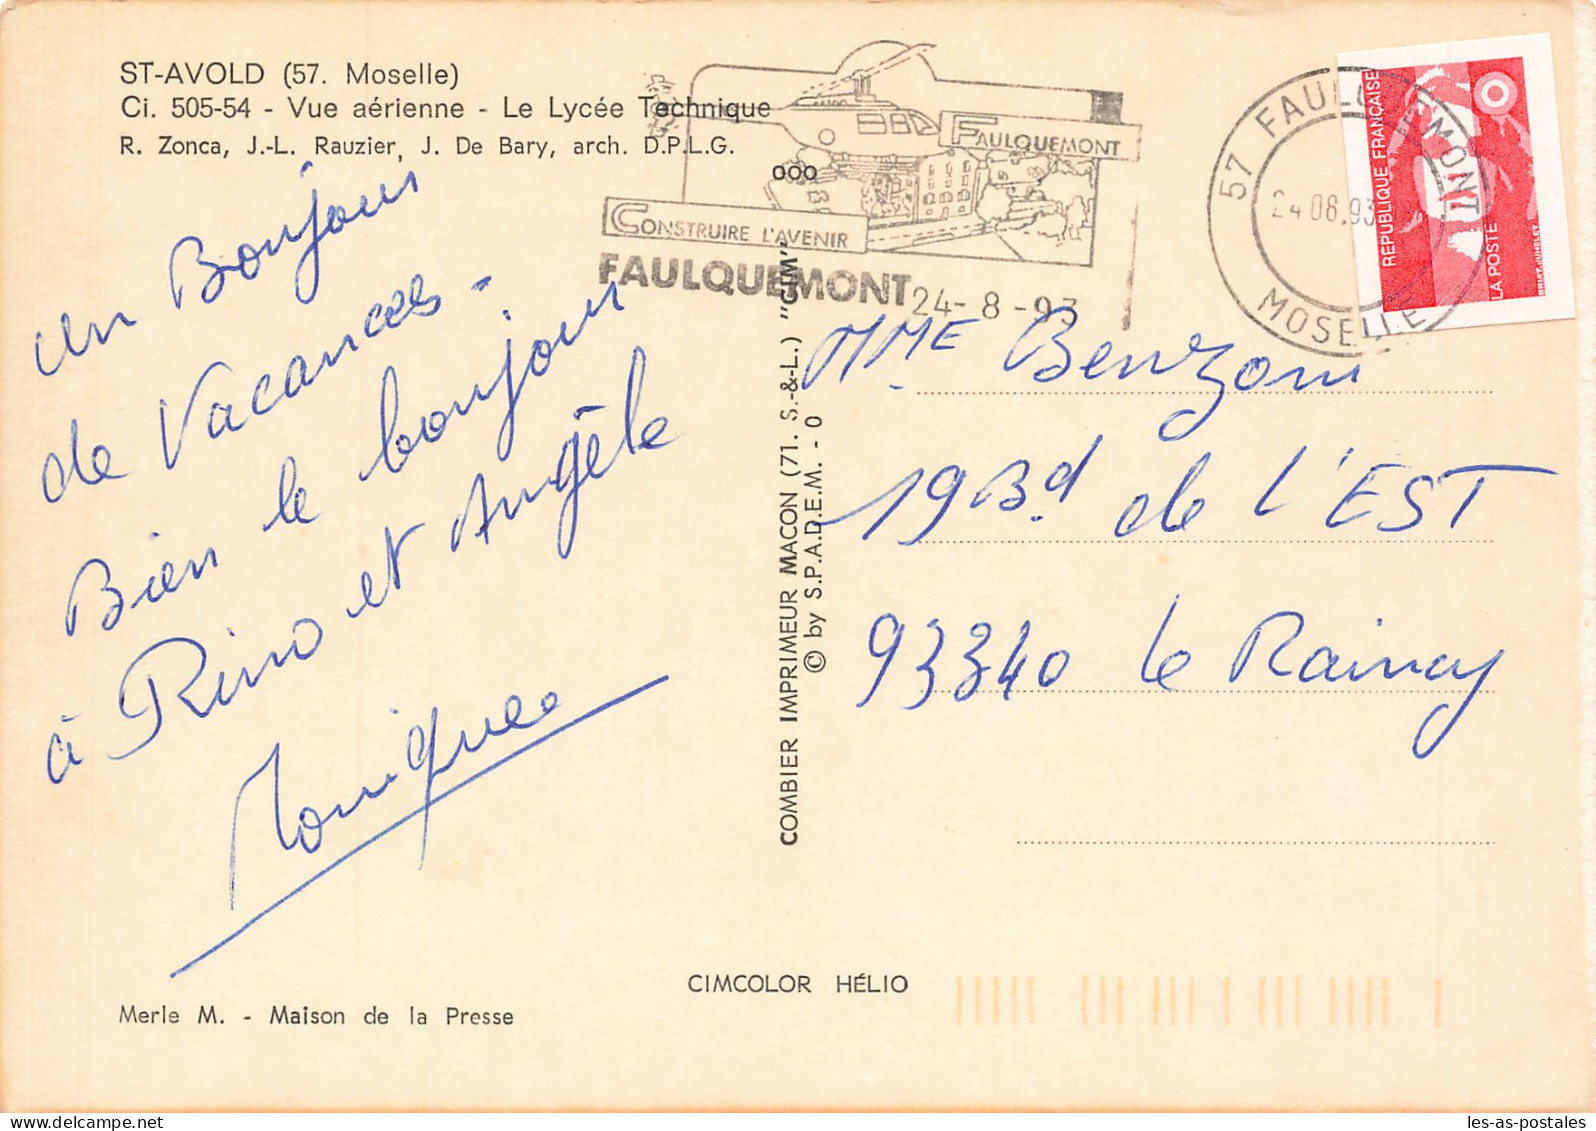 ST-AVOLD (57. Moselle)
Ci. 505-54 - Vue aérienne - Le Lycée Technique
R. Zonca, J.-L. Rauzier, J. De Bary, arch. D.P.L.G.
ooo
un Bonjour
de Vacances.
Bien le bonjour
à Rino et Angèle
Monique
Merle M. - Maison de la Presse
FAULQUEMONT
CONSTRUIRE L'AVENIR
FAULQUEMONT
24-8-93
57 FAULQUEMONT
24.08.93
MOSELLE
REPUBLIQUE FRANÇAISE
LA POSTE
BRIAT-JUMELET
COMBIER IMPRIMEUR MACON (71. S.-&-L.) "CIM"
© by S.P.A.D.E.M. - 0
MME Benzoni
19 Bd de L'EST
93340 Le Raincy
CIMCOLOR HÉLIO
les-as-postales